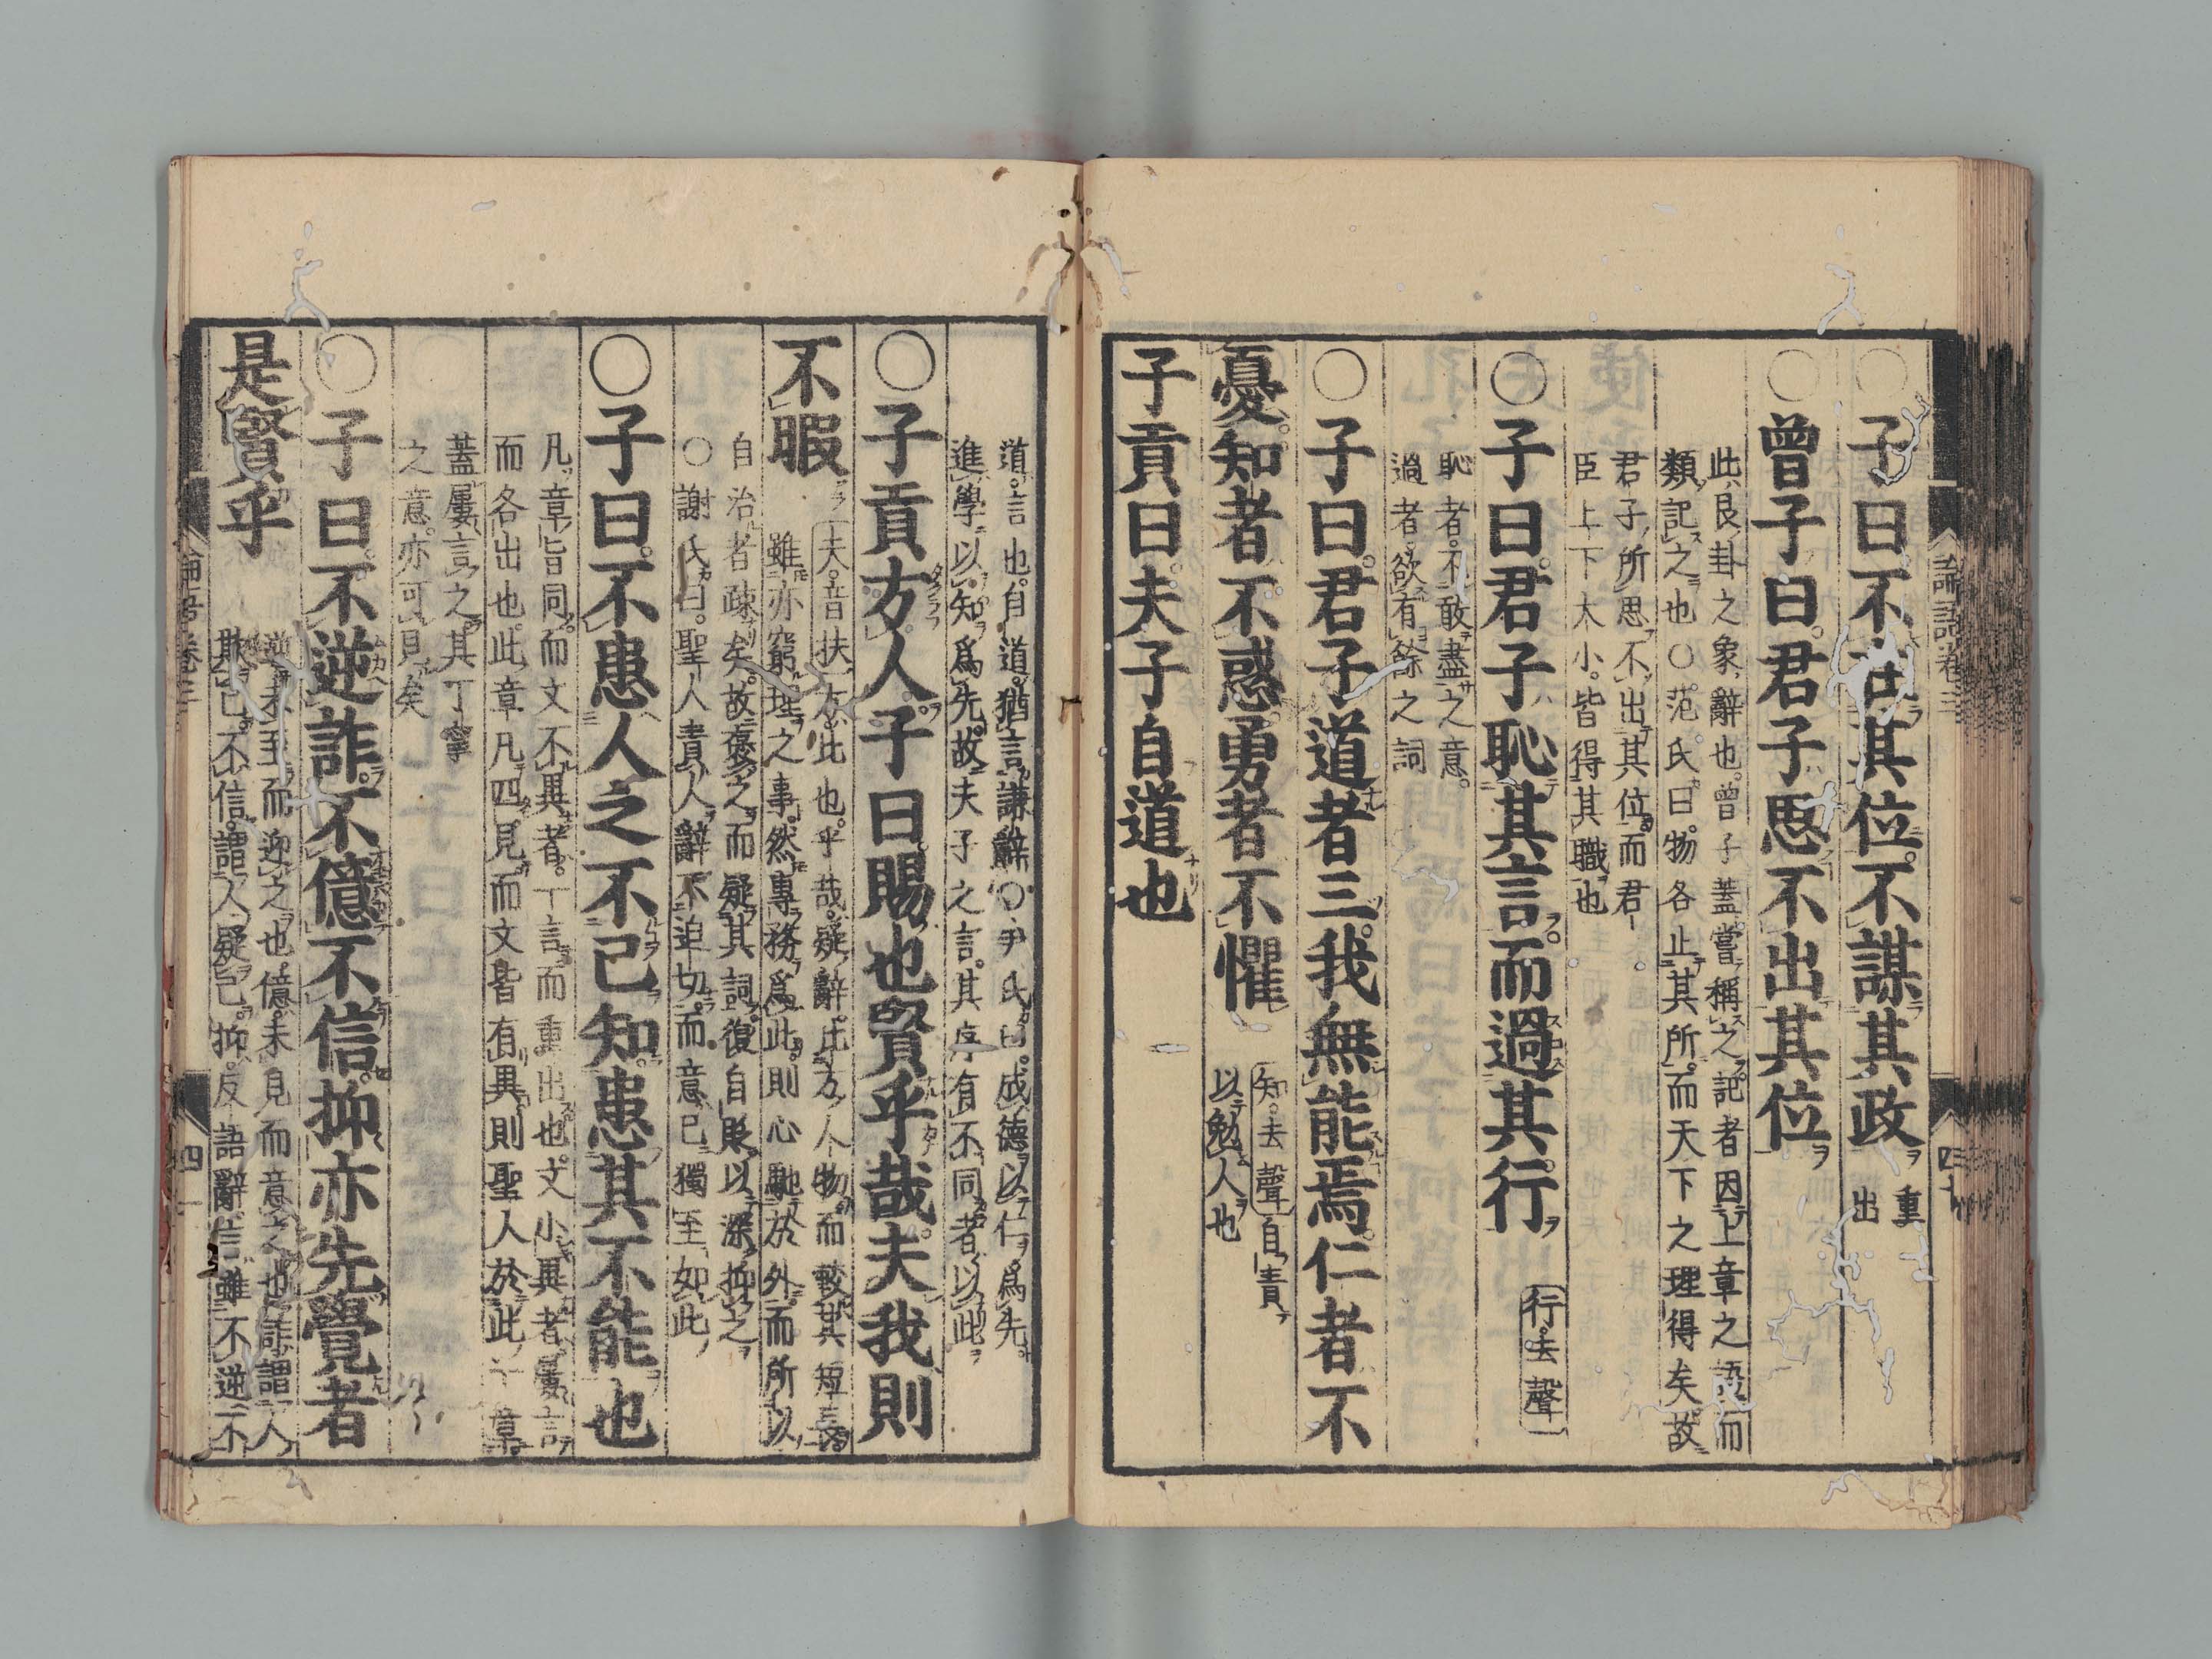 ○子曰不在其位不謀其政重
出
○曾子曰君子思不出其位
此艮卦之象辭也曾子蓋嘗稱之記者因上章之語而
類記之也○范氏曰物各止其所而天下之理得矣故
君子所思不出其位而君
臣上下大小皆得其職也
○子曰君子恥其言而過其行行去聲
恥者不敢盡之意
過者欲有餘之詞
○子曰君子道者三我無能焉仁者不
憂知者不惑勇者不懼知去聲自責
以勉人也
子貢曰夫子自道也
論語卷三
道言也自道猶言謙辭○尹氏曰成德以仁爲先
進學以知爲先故夫子之言其序有不同者以此
○子貢方人子曰賜也賢乎哉夫我則
不暇夫音扶方比也乎哉疑辭比方人物而較其短長
雖亦窮理之事然專務爲此則心馳於外而所以
自治者疎矣故褒之而疑其詞復自貶以深抑之
○謝氏曰聖人責人辭不迫切而意已獨至如此
○子曰不患人之不己知患其不能也
凡章旨同而文不異者一言而重出也文小異者屢言
而各出也此章凡四見而文皆有異則聖人於此一章
蓋屢言之其丁寧
之意亦可見矣
○子曰不逆詐不億不信抑亦先覺者
是賢乎逆未至而迎之也億未見而意之也詐謂人
欺己不信謂人疑己抑反語辭言雖不逆不
論語卷三 四